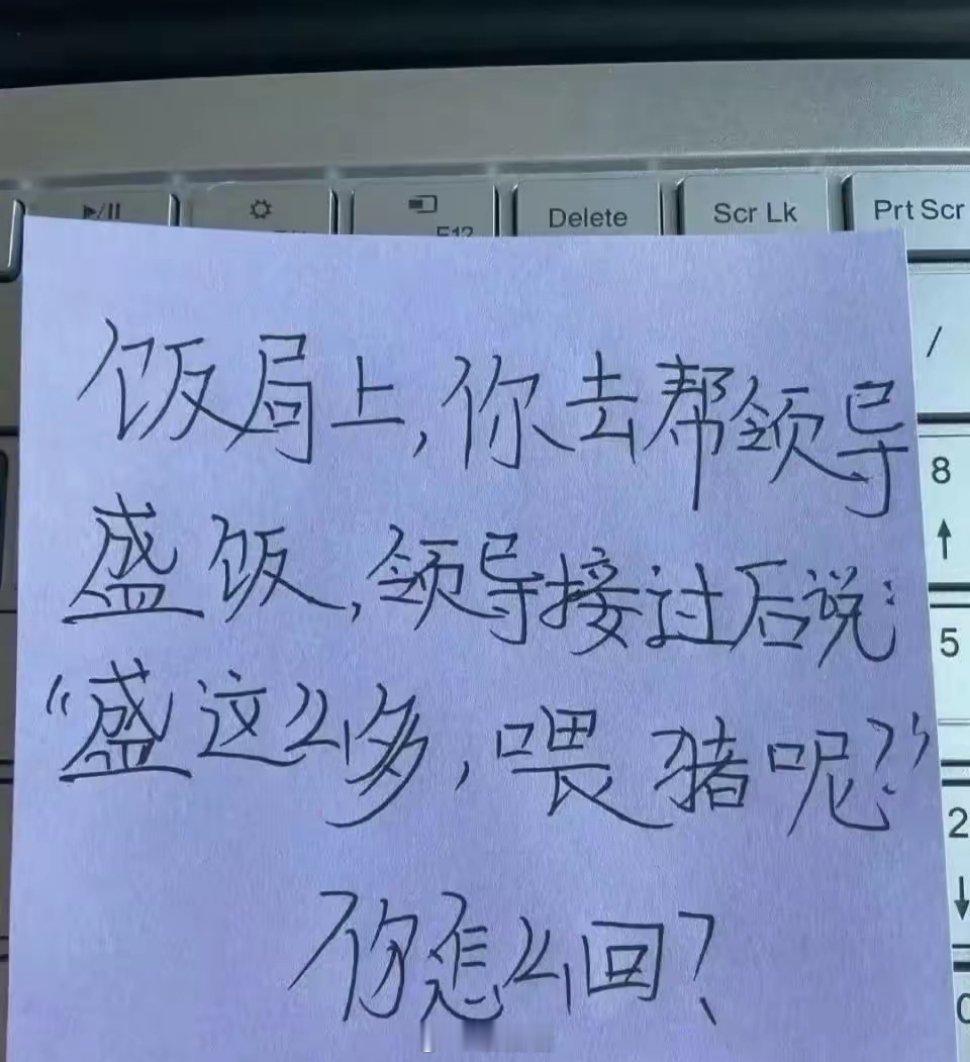 Delete
Scr Lk
Prt Scr
/
饭局上,你去帮领导
8
盛饭,领导接过后说:
5
“盛这么多,喂猪呢?”
2
你怎么回?